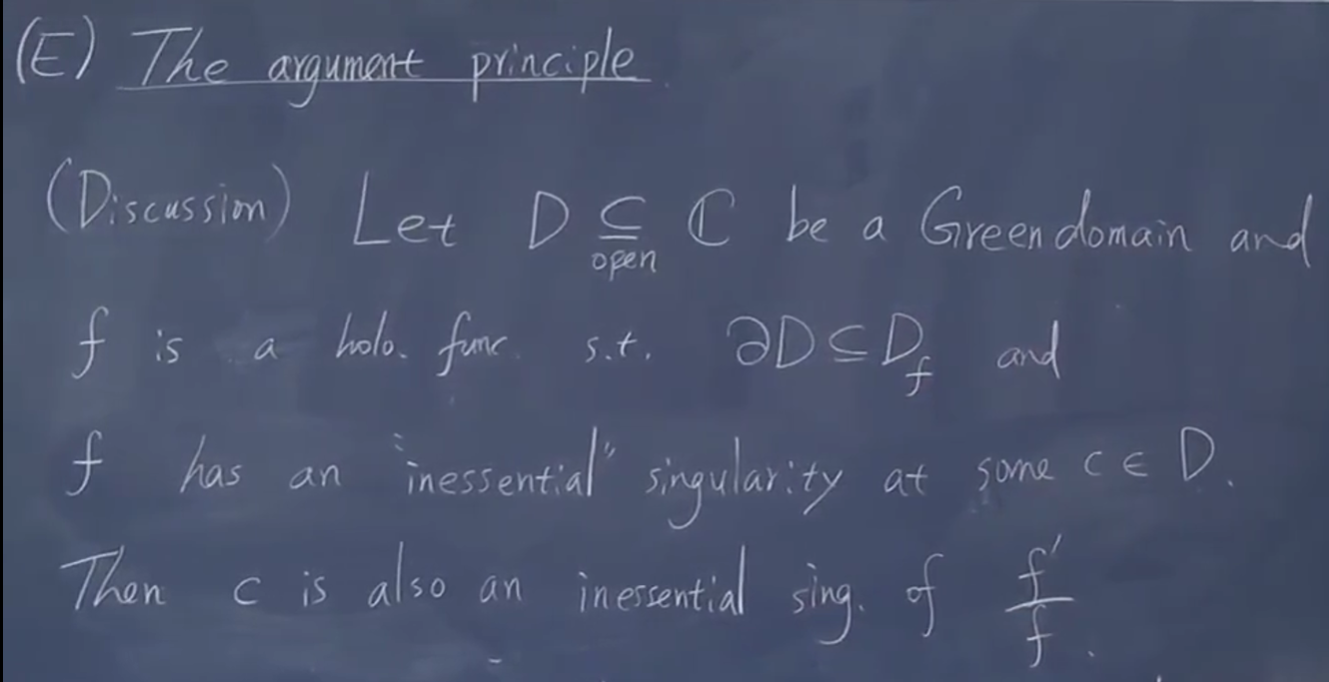 (E) The argument principle.
(Discussion) Let D ⊆ ℂ be a Green domain and
open
f is a holo. func. s.t. ∂D ⊆ D_f and
f has an "inessential" singularity at some c ∈ D.
Then c is also an inessential sing. of f'/f.